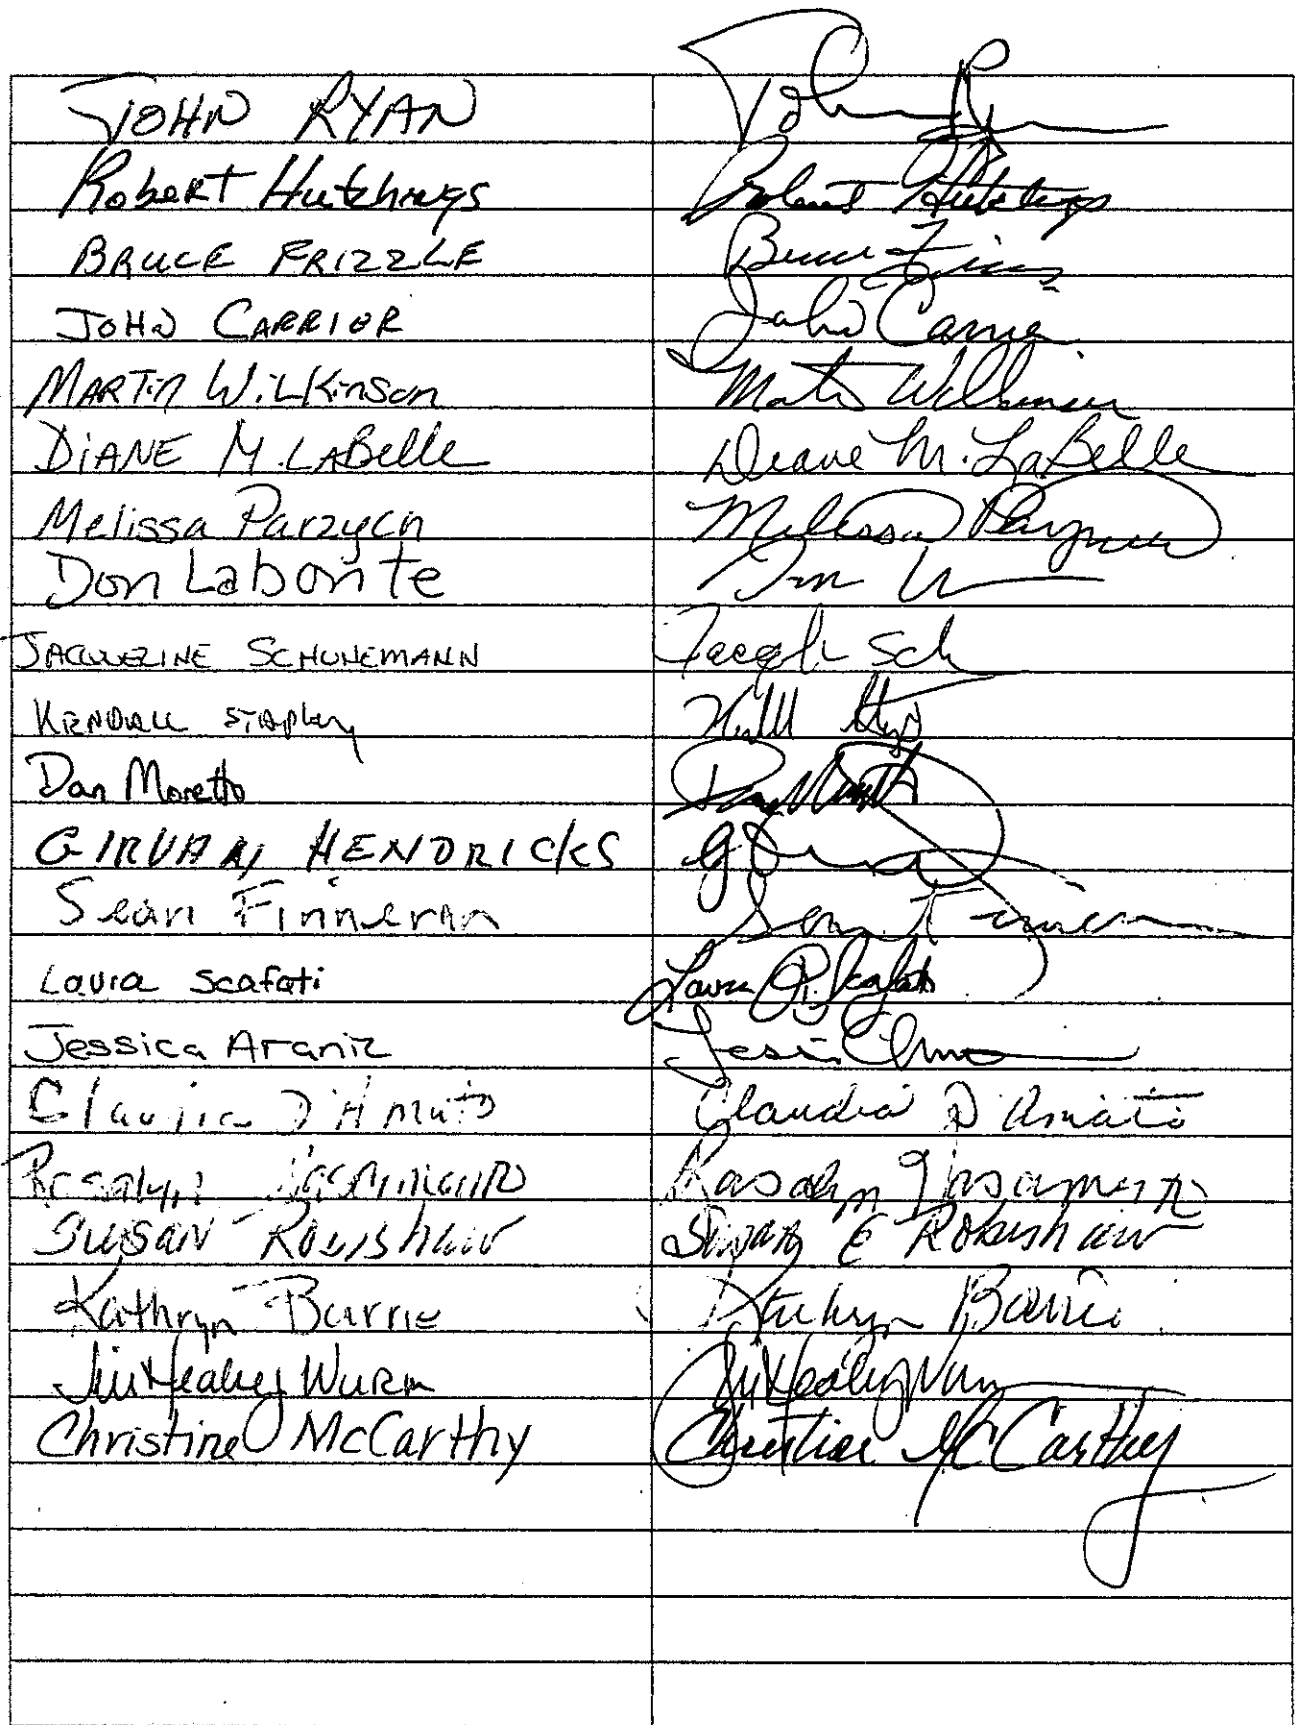 JOHN RYAN John R
Robert Hutchings Robert Hutchings
BRUCE FRIZZLE Bruce
JOHN CARRIER John Carrier
MARTIN WILKINSON Martin Wilkinson
DIANE M. LABelle Diane M. LaBelle
Melissa Parzych Melissa
Don Labonte Don
JACQUELINE SCHUNEMANN Sch
KENDALL STAPLEY
Dan Moretto
GIRVAN HENDRICKS
Sean Finneran Sean
Laura Scafati Laura Scafati
Jessica Araniz
Claudia D'Amato Claudia D'Amato
Rosalyn Rosalyn
SUSAN Robishaw Susan E Robishaw
Kathryn Barrie Kathryn Barrie
Healey Wurm Healey
Christine McCarthy Christine McCarthy